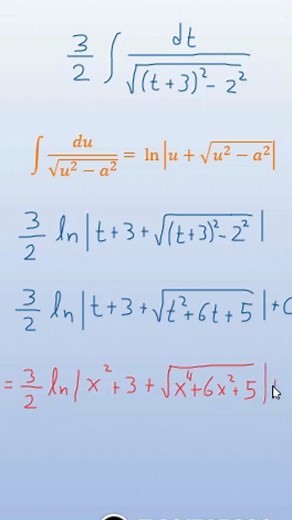 3/2 ∫ dt/√((t+3)²-2²)
∫ du/√(u² − a²) = ln|u + √(u² − a²)|
3/2 ln|t+3+√((t+3)²-2²)|
3/2 ln|t+3+√(t²+6t+5)|+C
= 3/2 ln|x²+3+√(x⁴+6x²+5)|+